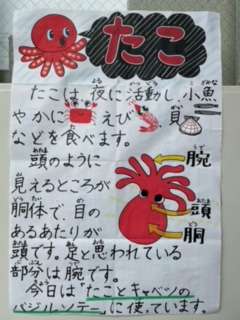 たこ
たこは、夜に活動し、小魚
やかに えび 貝
などを食べます。
頭のように
見えるところが
胴体で、目の
あるあたりが
頭です。足と思われている
部分は腕です。
今日は「たことキャベツの
バジルソテー」に使っています。
腕
頭
胴